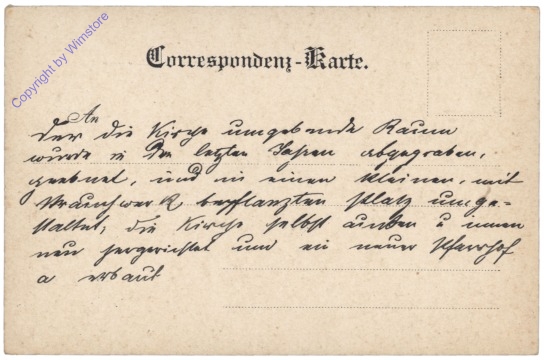 Copyright by Wimstore
Correspondenz-Karte.
An
Der die Kirche umgebende Raum
wurde in den letzten Jahren abgegraben,
geebnet, und in einen kleinen, mit
Strauchwerk bepflanzten Platz umge-
staltet, die Kirche selbst außen u innen
neu hergerichtet und ein neuer Pfarrhof
a erbaut